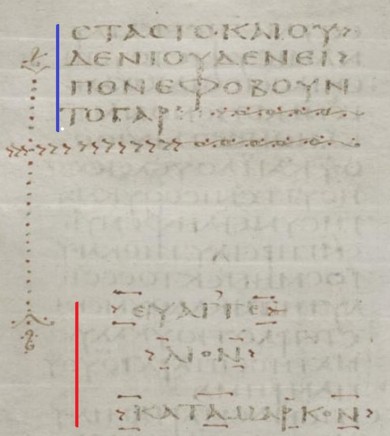 ϹΤΑϹΙϹΚΑΙΟΥ
ΔΕΝΙΟΥΔΕΝΕΙ
ΠΟΝΕΦΟΒΟΥΝ
ΤΟΓΑΡ
ΕΥΑΓΓΕ
ΛΙΟΝ
ΚΑΤΑΜΑΡΚΟΝ